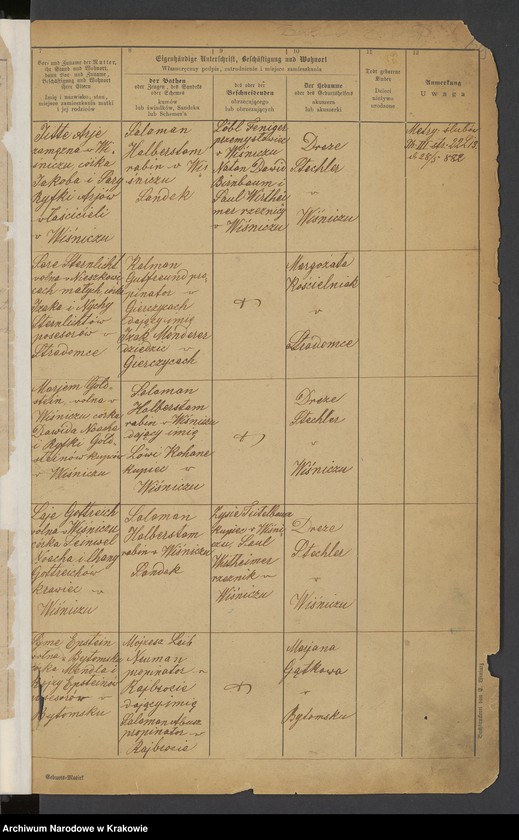 7
8
9
10
11
12
Vor- und Zuname der Mutter,
ihr Stand und Wohnort,
dann Vor- und Zuname,
Beschäftigung und Wohnort
ihrer Eltern
Imię i nazwisko, stan,
miejsce zamieszkania matki
i jej rodziców
Eigenhändige Unterschrift, Beschäftigung und Wohnort
Własnoręczny podpis, zatrudnienie i miejsce zamieszkania
der Pathen
oder Zeugen, des Sandeks
oder Schames
kumów
lub świadków, Sandeka
lub Schames'a
des oder der
Beschneidenden
obrzezującego
lub obrzezujących
Der Hebamme
oder des Geburtshelfers
akuszera
lub akuszerki
Todt geborene
Kinder
Dzieci
nieżywo
urodzone
Anmerkung
Uwaga
Jitte Arje
zamężna w Wi-
śniczu córka
Jakoba i
Ryfki Arjów
właścicieli
w Wiśniczu
Salaman
Halberstam
rabin w Wi-
śniczu
Sandek
Löbl Geniger
przemysłowiec
w Wiśniczu
Natan David
Birnbaum i
Saul Wirthei-
mer rzeznicy
w Wiśniczu
Dreze
Stechler
w
Wiśniczu
Metry ślubów
Sara Sternlicht
wolna w Nieszkowi-
cach małych córka
Izaka i Nychy
Sternlichtów
posesorów w
Stradomce
Kalman
Gutfreund pro-
pinator w
Gierczycach
dający imię
Izak Manderer
dziedzic w
Gierczycach
Margozata
Kościelniak
w
Stradomce
Marjem Gold-
stein, wolna w
Wiśniczu córka
Dawida Noacha
i Ryfki Gold-
steinów kupców
w Wiśniczu
Salaman
Halberstam
rabin w Wiśniczu
dający imię
Löwi Kohane
kupiec w
Wiśniczu
Dreze
Stechler
w
Wiśniczu
Laje Gottreich
wolna w Wiśniczu
córka Feiwel
Noacha i Chany
Gottreichów
krawiec w
Wiśniczu
Salaman
Halberstam
rabin w Wiśniczu
Sandek
Zysie Teitelbaum
kupiec w Wiśni-
czu, Saul
Wirtheimer
rzeznik w
Wiśniczu
Dreze
Stechler
w
Wiśniczu
Epstein
wolna w Bytomsku
córka Mendla i
Epsteinów
posesorów w
Bytomsku
Mojzesz Leib
Neuman
propinator w
Rajbrocie
dający imię
Salaman
propinator w
Rajbrocie
Marjana
Gątkowa
w
Bytomsku
Geburts-Matrik
Archiwum Narodowe w Krakowie